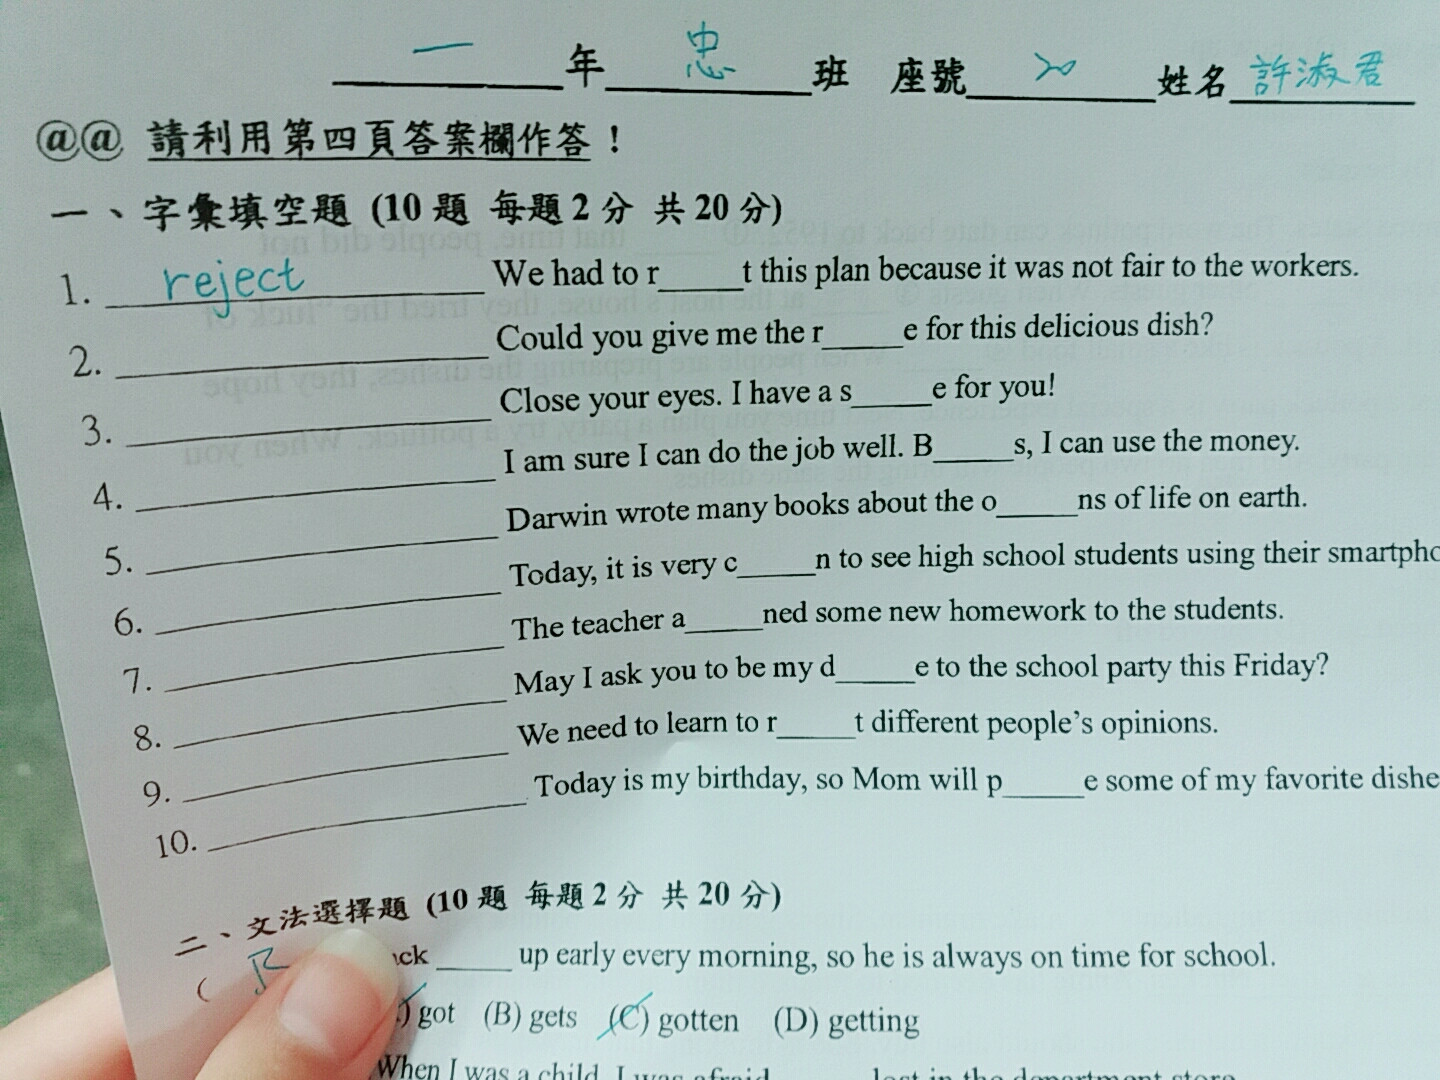 一 年 忠 班 座號 20 姓名 許淑君
@@ 請利用第四頁答案欄作答！
一、字彙填空題 (10 題 每題 2 分 共 20 分)
1. reject We had to r_____t this plan because it was not fair to the workers.
2. __________ Could you give me the r_____e for this delicious dish?
3. __________ Close your eyes. I have a s_____e for you!
4. __________ I am sure I can do the job well. B_____s, I can use the money.
5. __________ Darwin wrote many books about the o_____ns of life on earth.
6. __________ Today, it is very c_____n to see high school students using their smartpho
7. __________ The teacher a_____ned some new homework to the students.
8. __________ May I ask you to be my d_____e to the school party this Friday?
9. __________ We need to learn to r_____t different people's opinions.
10. __________ Today is my birthday, so Mom will p_____e some of my favorite dishe
二、文法選擇題 (10 題 每題 2 分 共 20 分)
( B ck _____ up early every morning, so he is always on time for school.
) got (B) gets (C) gotten (D) getting
When I was a child, I was afraid _____ lost in the department store.